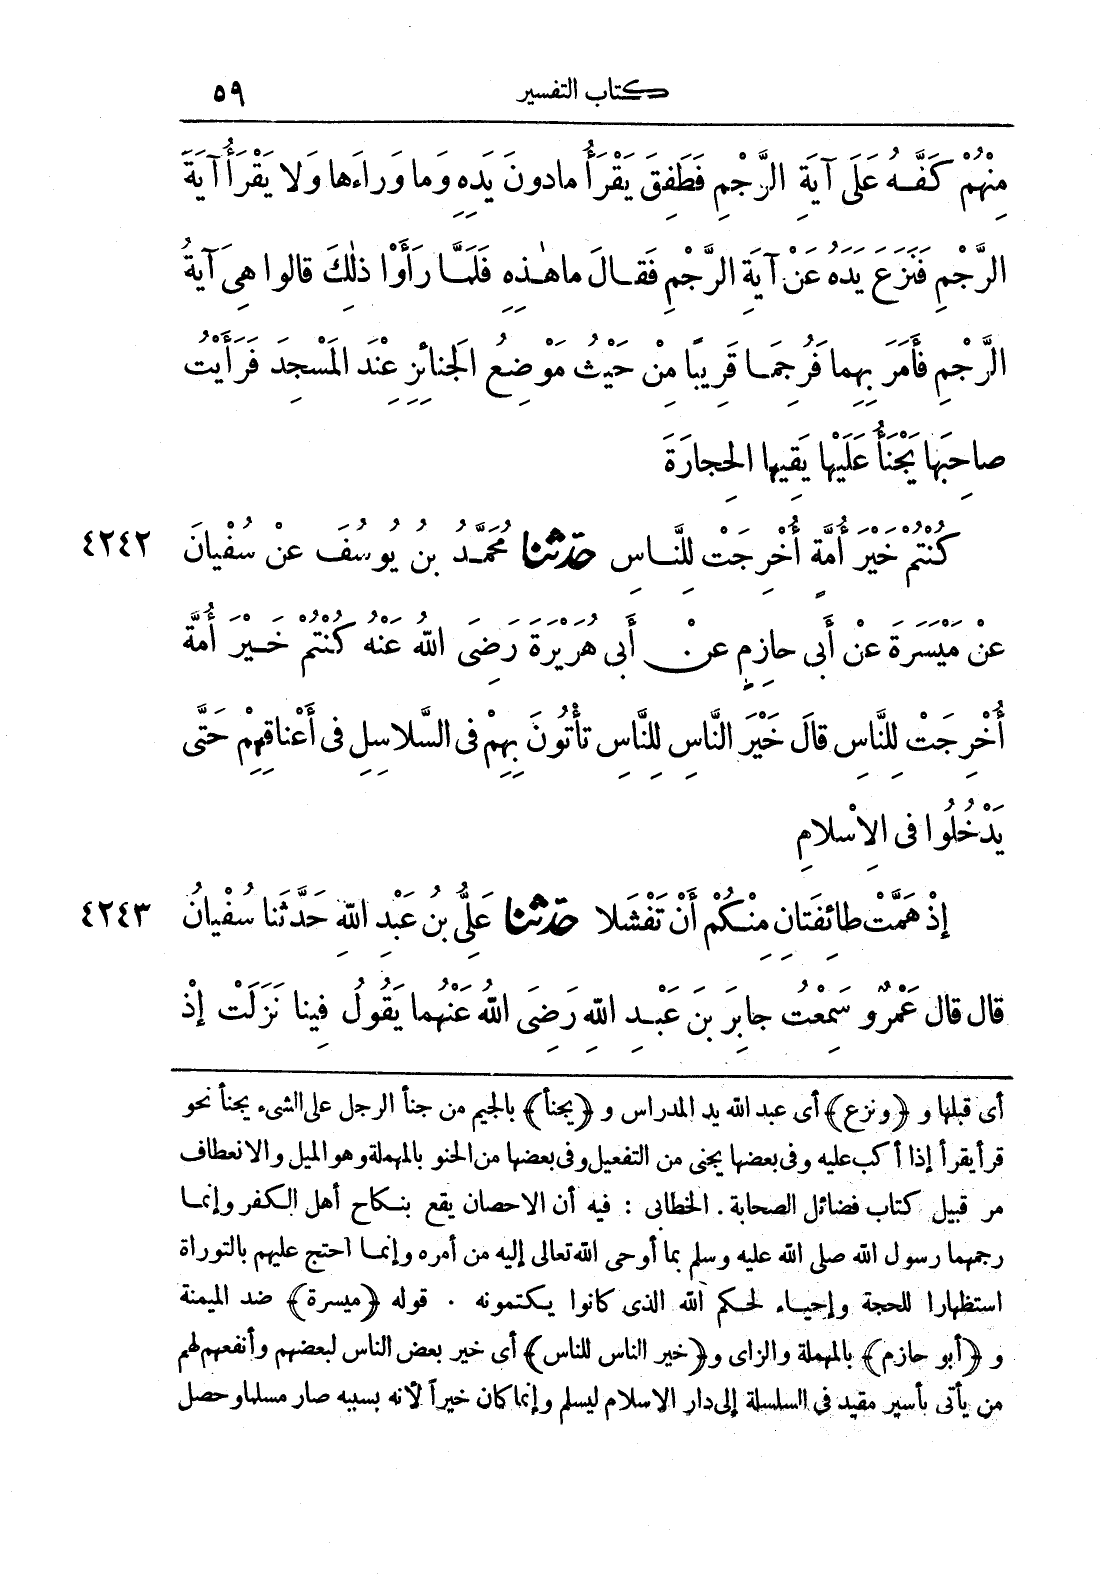 كتاب التفسير ٥٩
مِنْهُمْ كَفَّهُ عَلَى آيَةِ الرَّجْمِ فَطَفِقَ يَقْرَأُ مادونَ يَدِهِ وَما وَراءَها وَلا يَقْرَأُ آيَةَ
الرَّجْمِ فَنَزَعَ يَدَهُ عَنْ آيَةِ الرَّجْمِ فَقالَ ماهٰذِهِ فَلَمَّا رَأَوْا ذٰلِكَ قالوا هِىَ آيَةُ
الرَّجْمِ فَأَمَرَ بِهِما فَرُجِمَا قَرِيبًا مِنْ حَيْثُ مَوْضِعُ الجَنائِزِ عِنْدَ المَسْجِدَ فَرَأَيْت
صاحِبَها يَجْنَأُ عَلَيْها يَقِيها الحِجارَةَ
كُنْتُمْ خَيْرَ أُمَّةٍ أُخْرِجَتْ لِلنَّاسِ حدثنا مُحَمَّدُ بن يُوسُفَ عنْ سُفْيانَ ٤٢٤٢
عنْ مَيْسَرَةَ عنْ أَبى حازِمٍ عنْ أَبى هُرَيْرَةَ رَضِىَ اللهُ عَنْهُ كُنْتُمْ خَيْرَ أُمَّة
أُخْرِجَتْ لِلنَّاسِ قالَ خَيْرَ النَّاسِ لِلنَّاسِ تَأْتُونَ بِهِمْ فى السَّلاسِلِ فى أَعْناقِهِمْ حَتَّى
يَدْخُلُوا فى الإِسْلامِ
إذْ هَمَّتْ طائِفَتانِ مِنْكُمْ أَنْ تَفْشَلا حدثنا عَلِىُّ بنُ عَبْدِ اللهِ حَدَّثَنا سُفْيانُ ٤٢٤٣
قال قال عَمْرٌو سَمِعْت جابِرَ بنَ عَبْدِ اللهِ رَضِىَ اللهُ عَنْهُما يَقُولُ فِينا نَزَلَتْ إذْ
أى قبلها و ﴿ونزع﴾ أى عبد الله يد المدراس و ﴿يجنأ﴾ بالجيم من جنأ الرجل على الشىء يجنأ نحو
قرأ يقرأ إذا أكب عليه وفى بعضها يجنى من التفعيل وفى بعضها من الحنو بالمهملة وهو الميل والانعطاف
مر قبيل كتاب فضائل الصحابة. الخطابى : فيه أن الاحصان يقع بنكاح أهل الكفر وإنما
رجمهما رسول الله صلى الله عليه وسلم بما أوحى الله تعالى إليه من أمره وإنما احتج عليهم بالتوراة
استظهارا للحجة وإحياء لحكم الله الذى كانوا يكتمونه . قوله ﴿ميسرة﴾ ضد الميمنة
و ﴿أبو حازم﴾ بالمهملة والزاى و﴿خير الناس للناس﴾ أى خير بعض الناس لبعضهم وأنفعهم لهم
من يأتى بأسير مقيد فى السلسلة إلى دار الاسلام ليسلم وإنما كان خيراً لأنه بسببه صار مسلما وحصل